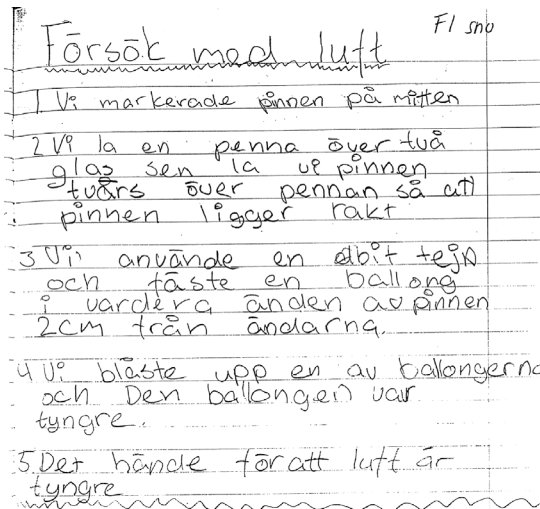 Fl sno
Försök med luft
1 Vi markerade pinnen på mitten
2 Vi la en penna över två
glas sen la vi pinnen
tvärs över pennan så att
pinnen ligger rakt
3 Vi använde en bit tejp
och fäste en ballong
i vardera änden av pinnen
2cm från ändarna.
4 Vi blåste upp en av ballongerna
och Den ballongen var
tyngre.
5. Det hände för att luft är
tyngre